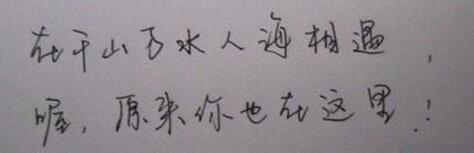 在千山万水人海相遇，
喔，原来你也在这里！